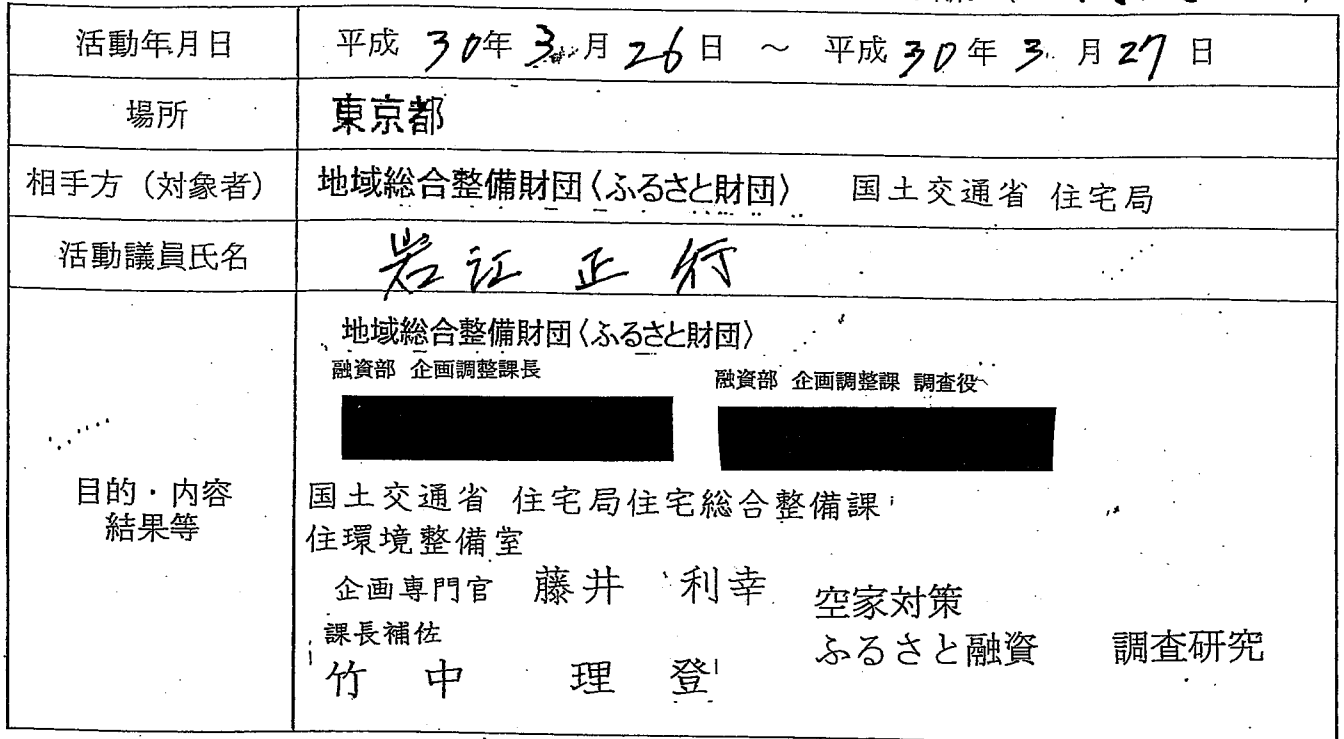 活動年月日 平成 30年 3月 26日 ～ 平成 30年 3月 27日
場所 東京都
相手方（対象者） 地域総合整備財団〈ふるさと財団〉 国土交通省 住宅局
活動議員氏名 岩江 正行
目的・内容
結果等
地域総合整備財団〈ふるさと財団〉
融資部 企画調整課長 融資部 企画調整課 調査役
国土交通省 住宅局住宅総合整備課
住環境整備室
企画専門官 藤井 利幸
課長補佐
竹中 理登
空家対策
ふるさと融資 調査研究